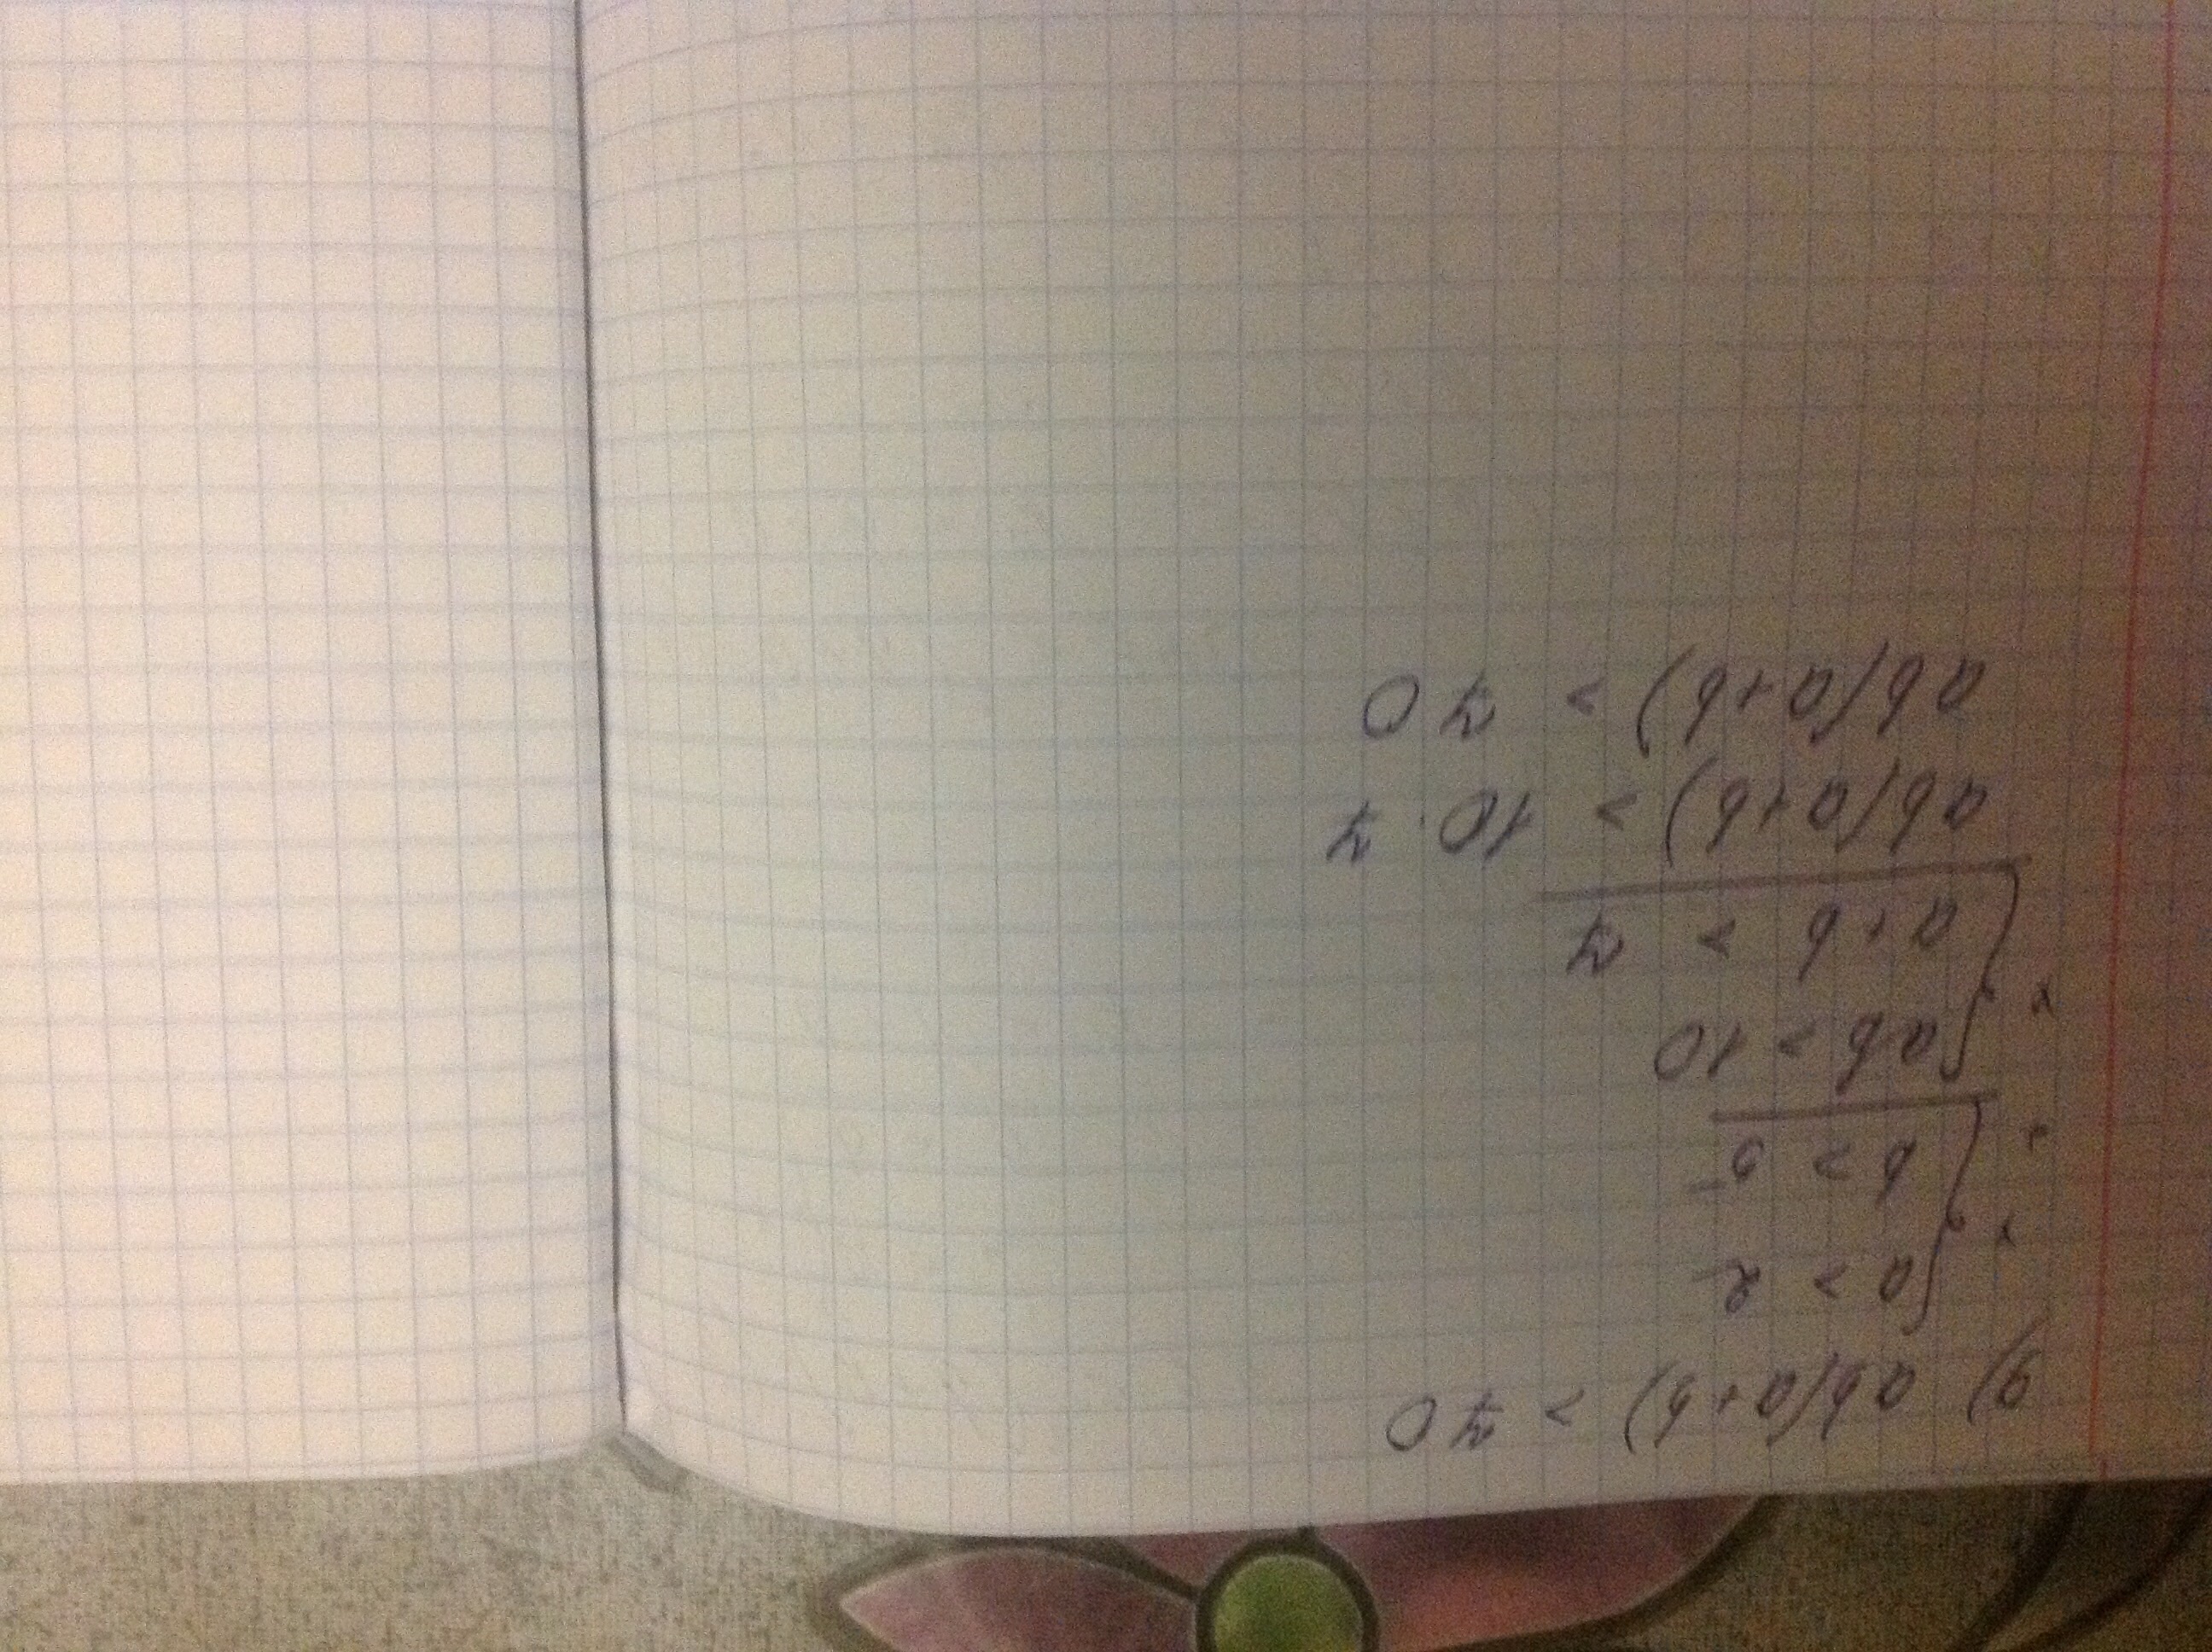 б) ab(a+b) > 70
× { a > 2
+ b > 5
× { ab > 10
a+b > 7
ab(a+b) > 10·7
ab(a+b) > 70